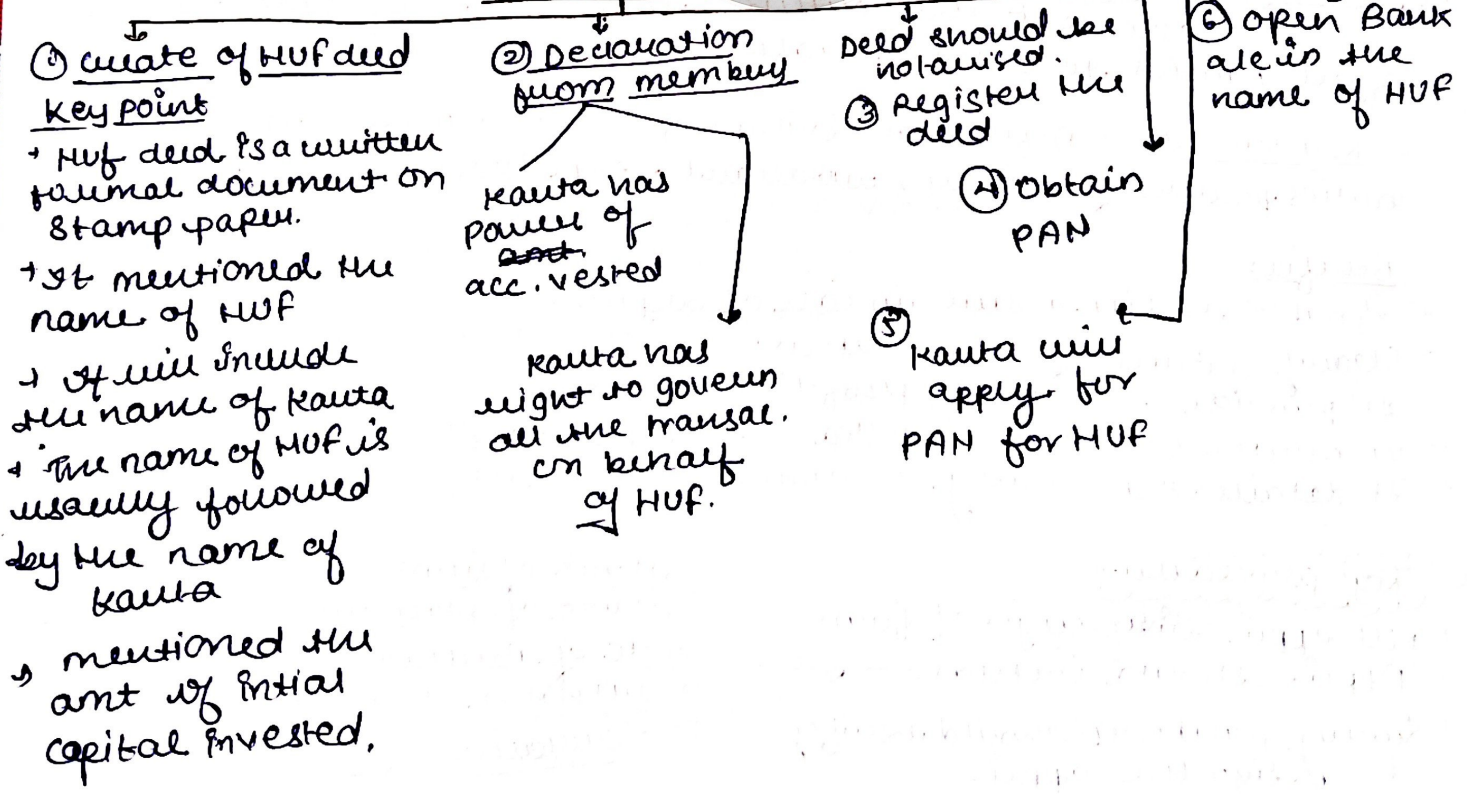 ① Create of HUF deed
Key point
→ HUF deed is a written
formal document on
stamp paper.
→ It mentioned the
name of HUF
→ It will include
the name of Karta
→ The name of HUF is
usually followed
by the name of
Karta
→ mentioned the
amt of intial
capital invested.
② Declaration
from member
Karta has
power of
acc. vested
Karta has
right to govern
all the transac.
on behalf
of HUF.
Deed should be
notarised.
③ Register the
deed
④ Obtain
PAN
⑤
Karta will
apply for
PAN for HUF
⑥ Open Bank
a/c in the
name of HUF